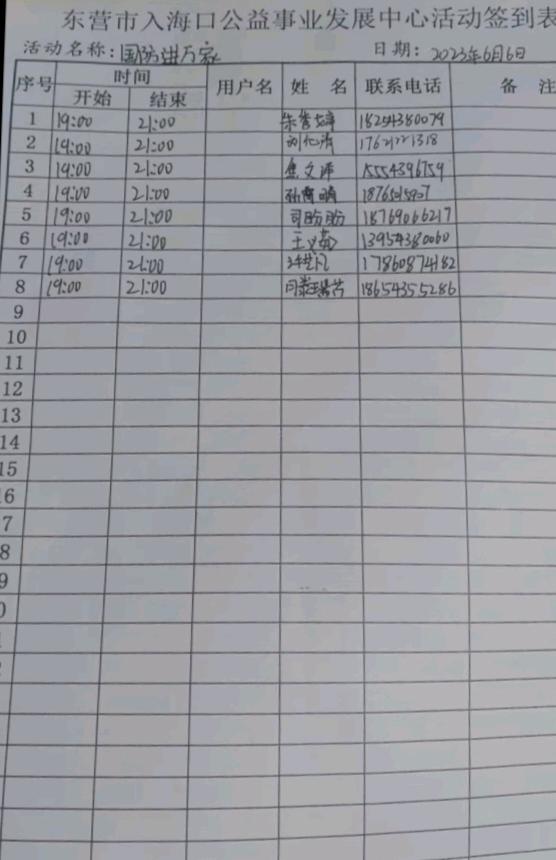 东营市入海口公益事业发展中心活动签到表
活动名称:国防进万家 日期:2023年6月6日
序号 时间 用户名 姓名 联系电话 备注
开始 结束
1 19:00 21:00 18254380079
2 19:00 21:00 17621221318
3 19:00 21:00 焦文 15554396759
4 19:00 21:00 孙 18765015907
5 19:00 21:00 司盼盼 18769066217
6 19:00 21:00 王义 13954380060
7 19:00 21:00 17860874182
8 19:00 21:00 18654355286
9
10
11
12
13
14
15
16
7
8
9
0